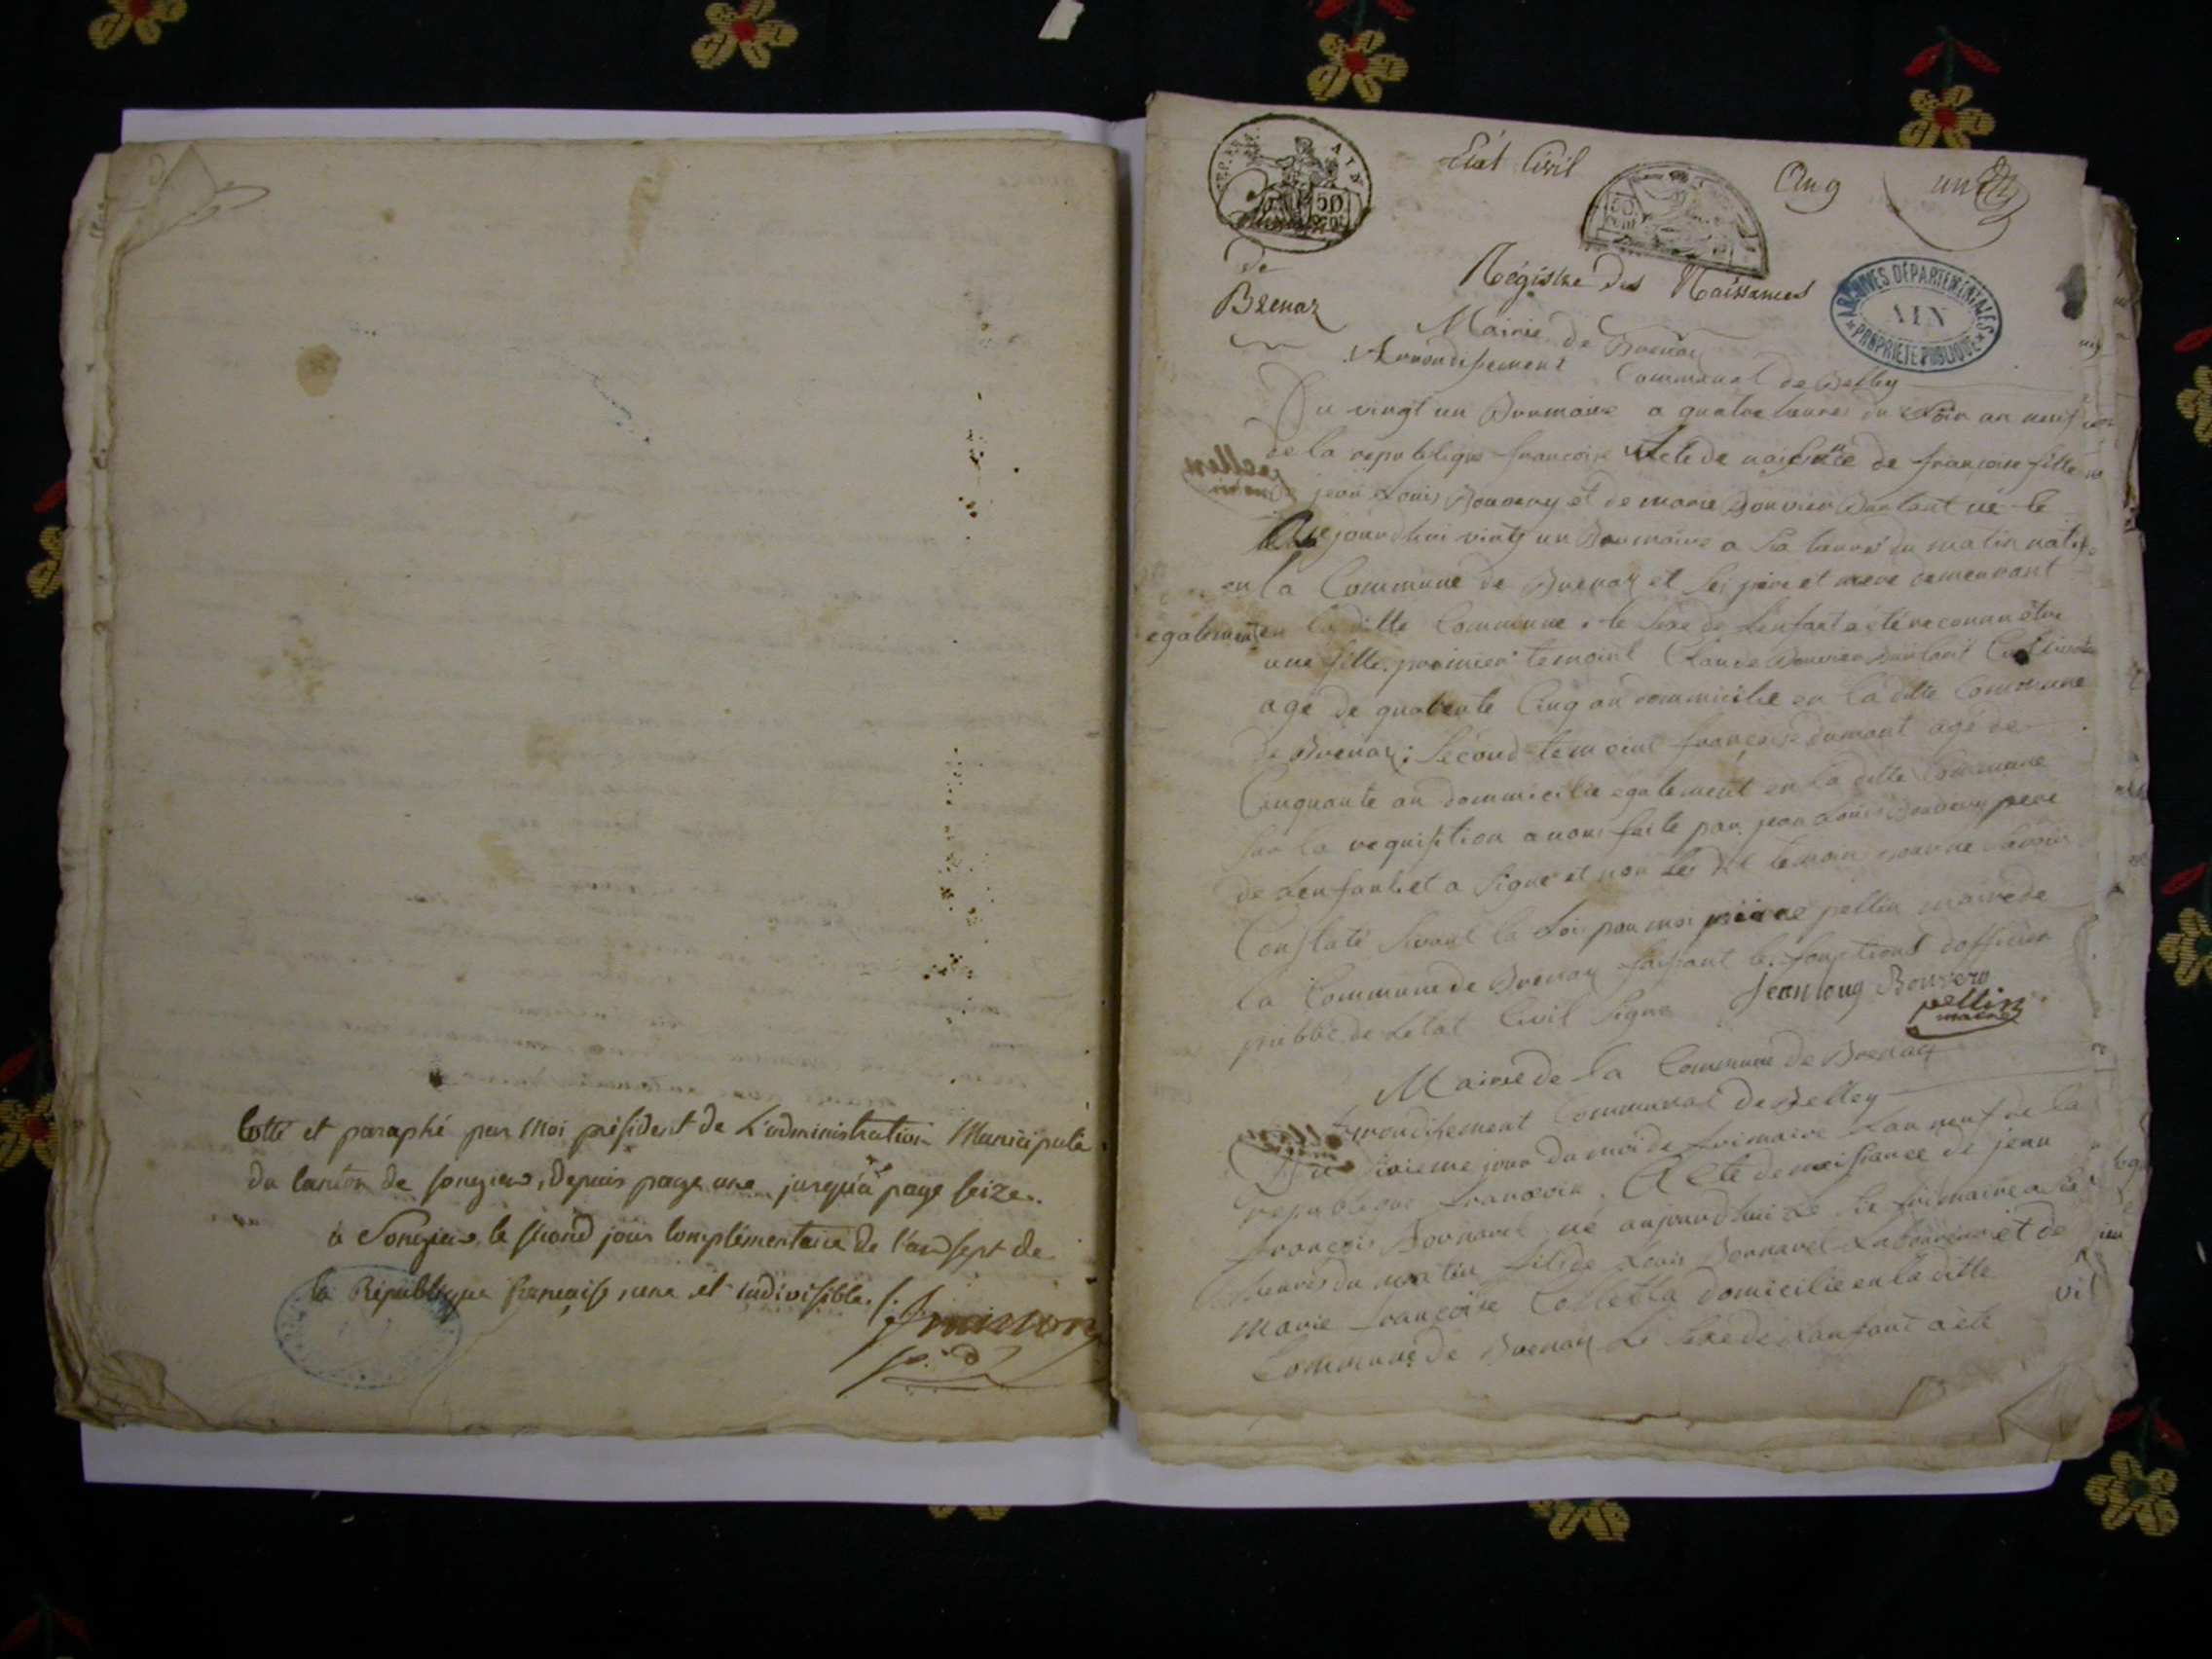 Cotté et paraphé par moi président de L'administration Municipale
du canton de songieu, Depuis page une jusqu'à page seize.
à Songieu le second jour complémentaire de l'an sept de
la République française, une et indivisible.
Etat Civil
Cinq
un
REP. FRA.
AIN
50
50
cent
de
Brenaz
Régistre des Naissances
ARCHIVES DÉPARTEMENTALES
AIN
PROPRIÉTÉ PUBLIQUE
Mairie de Brenaz
Arrondissement Communal de Belley
Du vingt un Brumaire a quatre heures du Soir an neuf
de la republique francoise Acte de naissance de francoise fille
jean Louis et de marie Bouvier né le
jourdhui vingt un Brumaire a six heures du matin natif
en la Commune de Brenaz et ses père et mere demeurant
egalement en la ditte Commune. le sexe de Lenfant a été reconnu être
une fille. premier temoint Claude Bouvier Cultivateur
age de quarente Cinq an dommicilie en la ditte Commune
de Brenaz; Second temoint françois dumont agé de
Cinquante an dommicilie egalement en la ditte Commune
Sur la requisition a nous faite par jean Louis pere
de Lenfant et a Signé et non Les dit temoin pour ne Savoir
Constaté Suivant la Loi par moi pierre pellin maire de
la Commune de Brenaz faisant les fonctions dofficier
public de Letat Civil Signe Jean louy Bonvery
pellin
maire
Mairie de la Commune de Brenaz
Arrondissement Communal de Belley
Du Sixieme jour du moi de frimaire Lan neuf de la
republique francoise. Acte de naissance de jean
françois né aujourdhui Le six frimaire a six
heures du matin fils de Louis Laboureur et de
marie françoise Colletta domicilie en la ditte
Commune de Brenaz Le Sexe de Lanfant a été